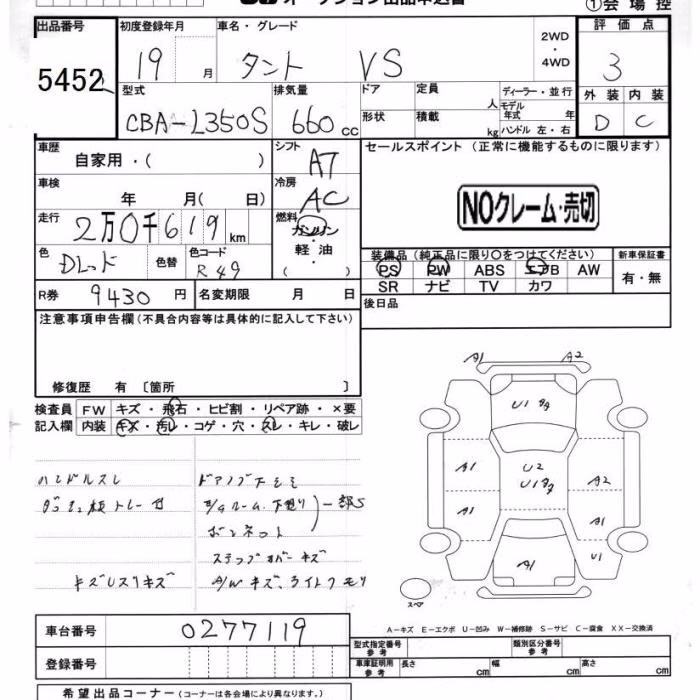 オークション出品申込書
①会場控
出品番号 初度登録年月 車名・グレード 2WD・4WD 評価点
5452 19 月 タント VS 3
型式 排気量 ドア 定員 人 ディーラー・並行 外装 内装
CBA-L350S 660cc 形状 積載 kg モデル年式 年 ハンドル 左・右 D C
車歴 自家用・( ) シフト AT セールスポイント (正常に機能するものに限ります)
車検 年 月( 日) 冷房 AC
NOクレーム・売切
走行 2万0千619km 燃料 ガソリン・軽油・( )
色 Dレッド 色替 色コード R49
装備品(純正品に限り○をつけてください) 新車保証書
PS PW ABS エアB AW 有・無
SR ナビ TV カワ
R券 9430円 名変期限 月 日 後日品
注意事項申告欄(不具合内容等は具体的に記入して下さい)
修復歴 有〔箇所 〕
検査員 FW キズ・飛石・ヒビ割・リペア跡・×要
記入欄 内装 キズ・汚レ・コゲ・穴・スレ・キレ・破レ
ハンドルスレ
トレー
ボンネット
ステップ キズ
A/Wキズ、ライトクモリ
A1 A2
U1
A1 U2 A2
A1 A1
A1 U1
スペア
A-キズ E-エクボ U-凹み W-補修跡 S-サビ C-腐食 XX-交換済
車台番号 0277119
登録番号
型式指定番号 参考 類別区分番号 参考
車庫証明用 参考 長さ cm 幅 cm 高さ cm
希望出品コーナー(コーナーは各会場により異なります。)